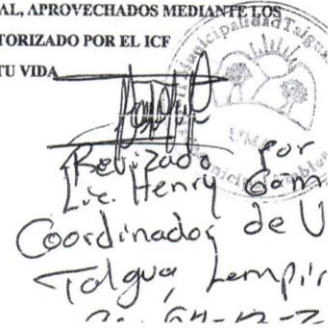 AL, APROVECHADOS MEDIANTE LOS
TORIZADO POR EL ICF
TU VIDA
Municipalidad Talgua
UMA
Revizado por
Lic. Henry Góm
Coordinador de U
Talgua, Lempir